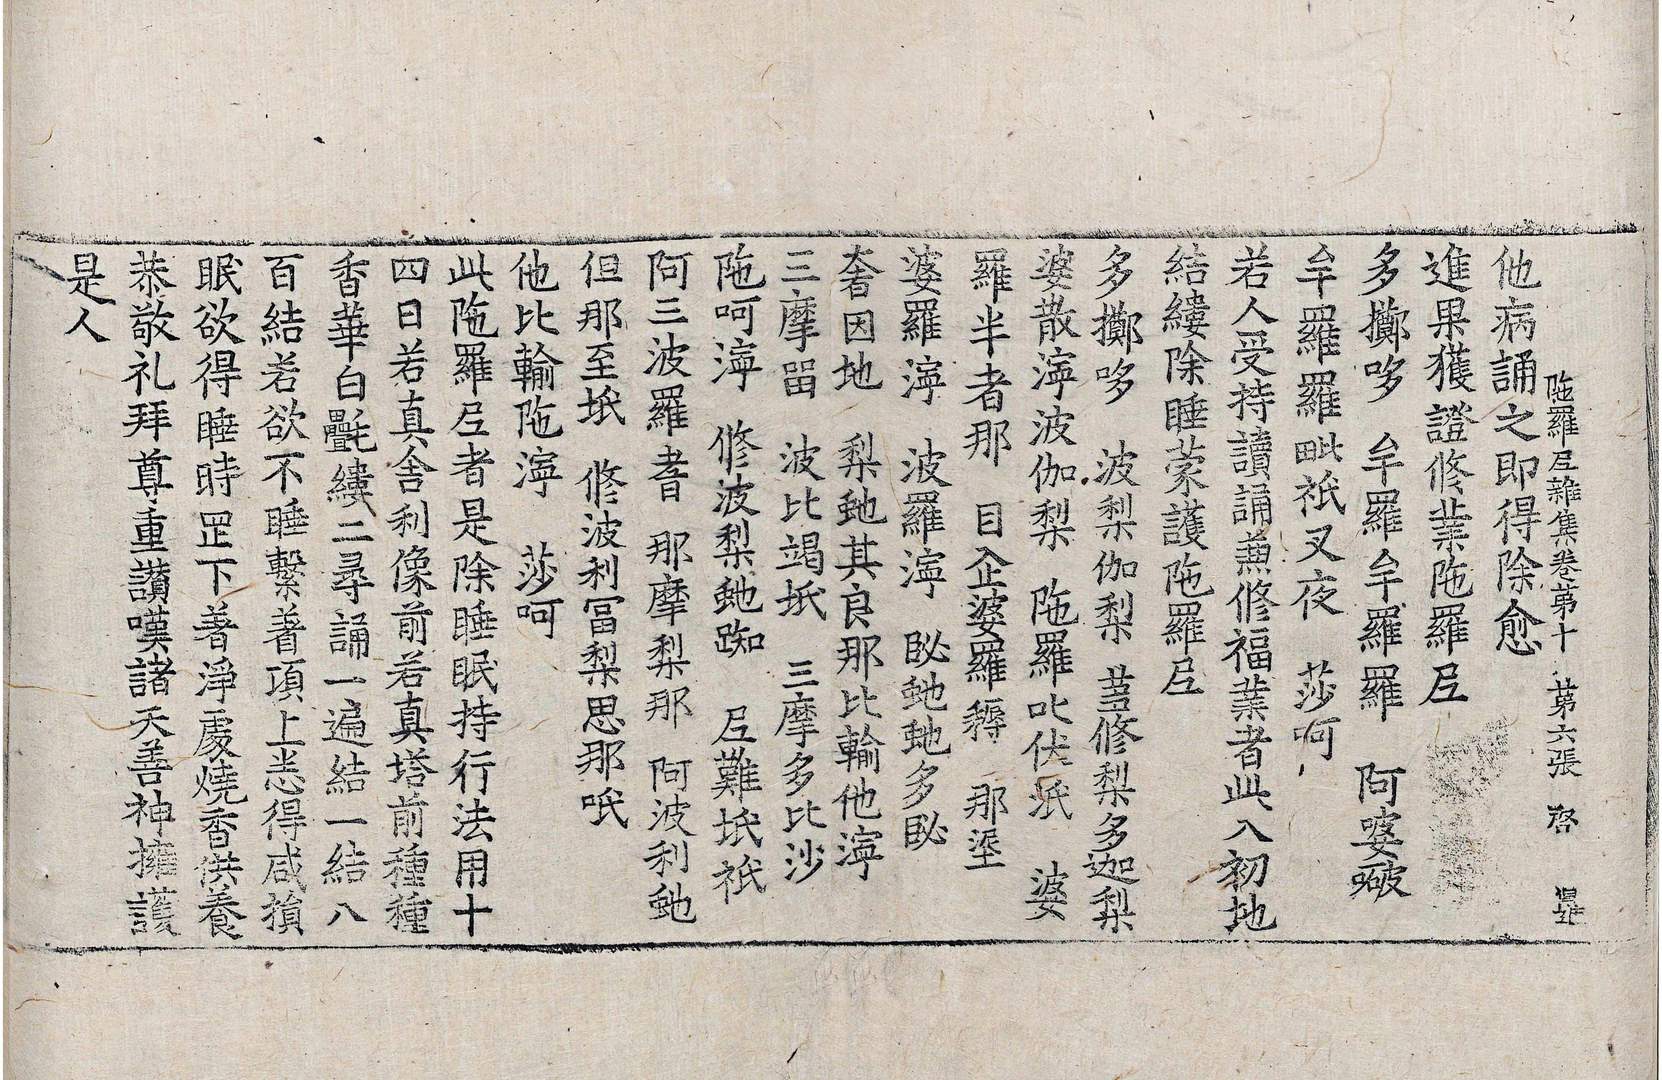 陁羅尼雜集卷第十 第六張 啓
他病誦之即得除愈
進果獲證修業陁羅尼
多擲哆 牟羅牟羅羅 阿婆
牟羅羅毗祇叉夜 莎呵
若人受持讀誦兼修福業者此入初地
結縷除睡蒙護陁羅尼
多擲哆 波梨伽梨 莖修梨多迦梨
婆散濘波伽梨 陁羅叱伏坁 婆
羅半者那 目企婆羅稱 那埿
婆羅濘 波羅濘 䏟虵虵多䏟
奢因地 梨虵其良那比輸他濘
三摩留 波比竭坁 三摩多比沙
陁呵濘 修波梨虵踟 尼難坁祇
阿三波羅耆 那摩梨那 阿波利虵
但那至坁 修波利冨梨思那呧
他比輸陁濘 莎呵
此陁羅尼者是除睡眠持行法用十
四日若真舍利像前若真塔前種種
香華白㲲縷二尋誦一遍結一結八
百結若欲不睡繫著項上悉得咸損
眠欲得睡時罡下著淨處燒香供養
恭敬礼拜尊重讚嘆諸天善神擁護
是人